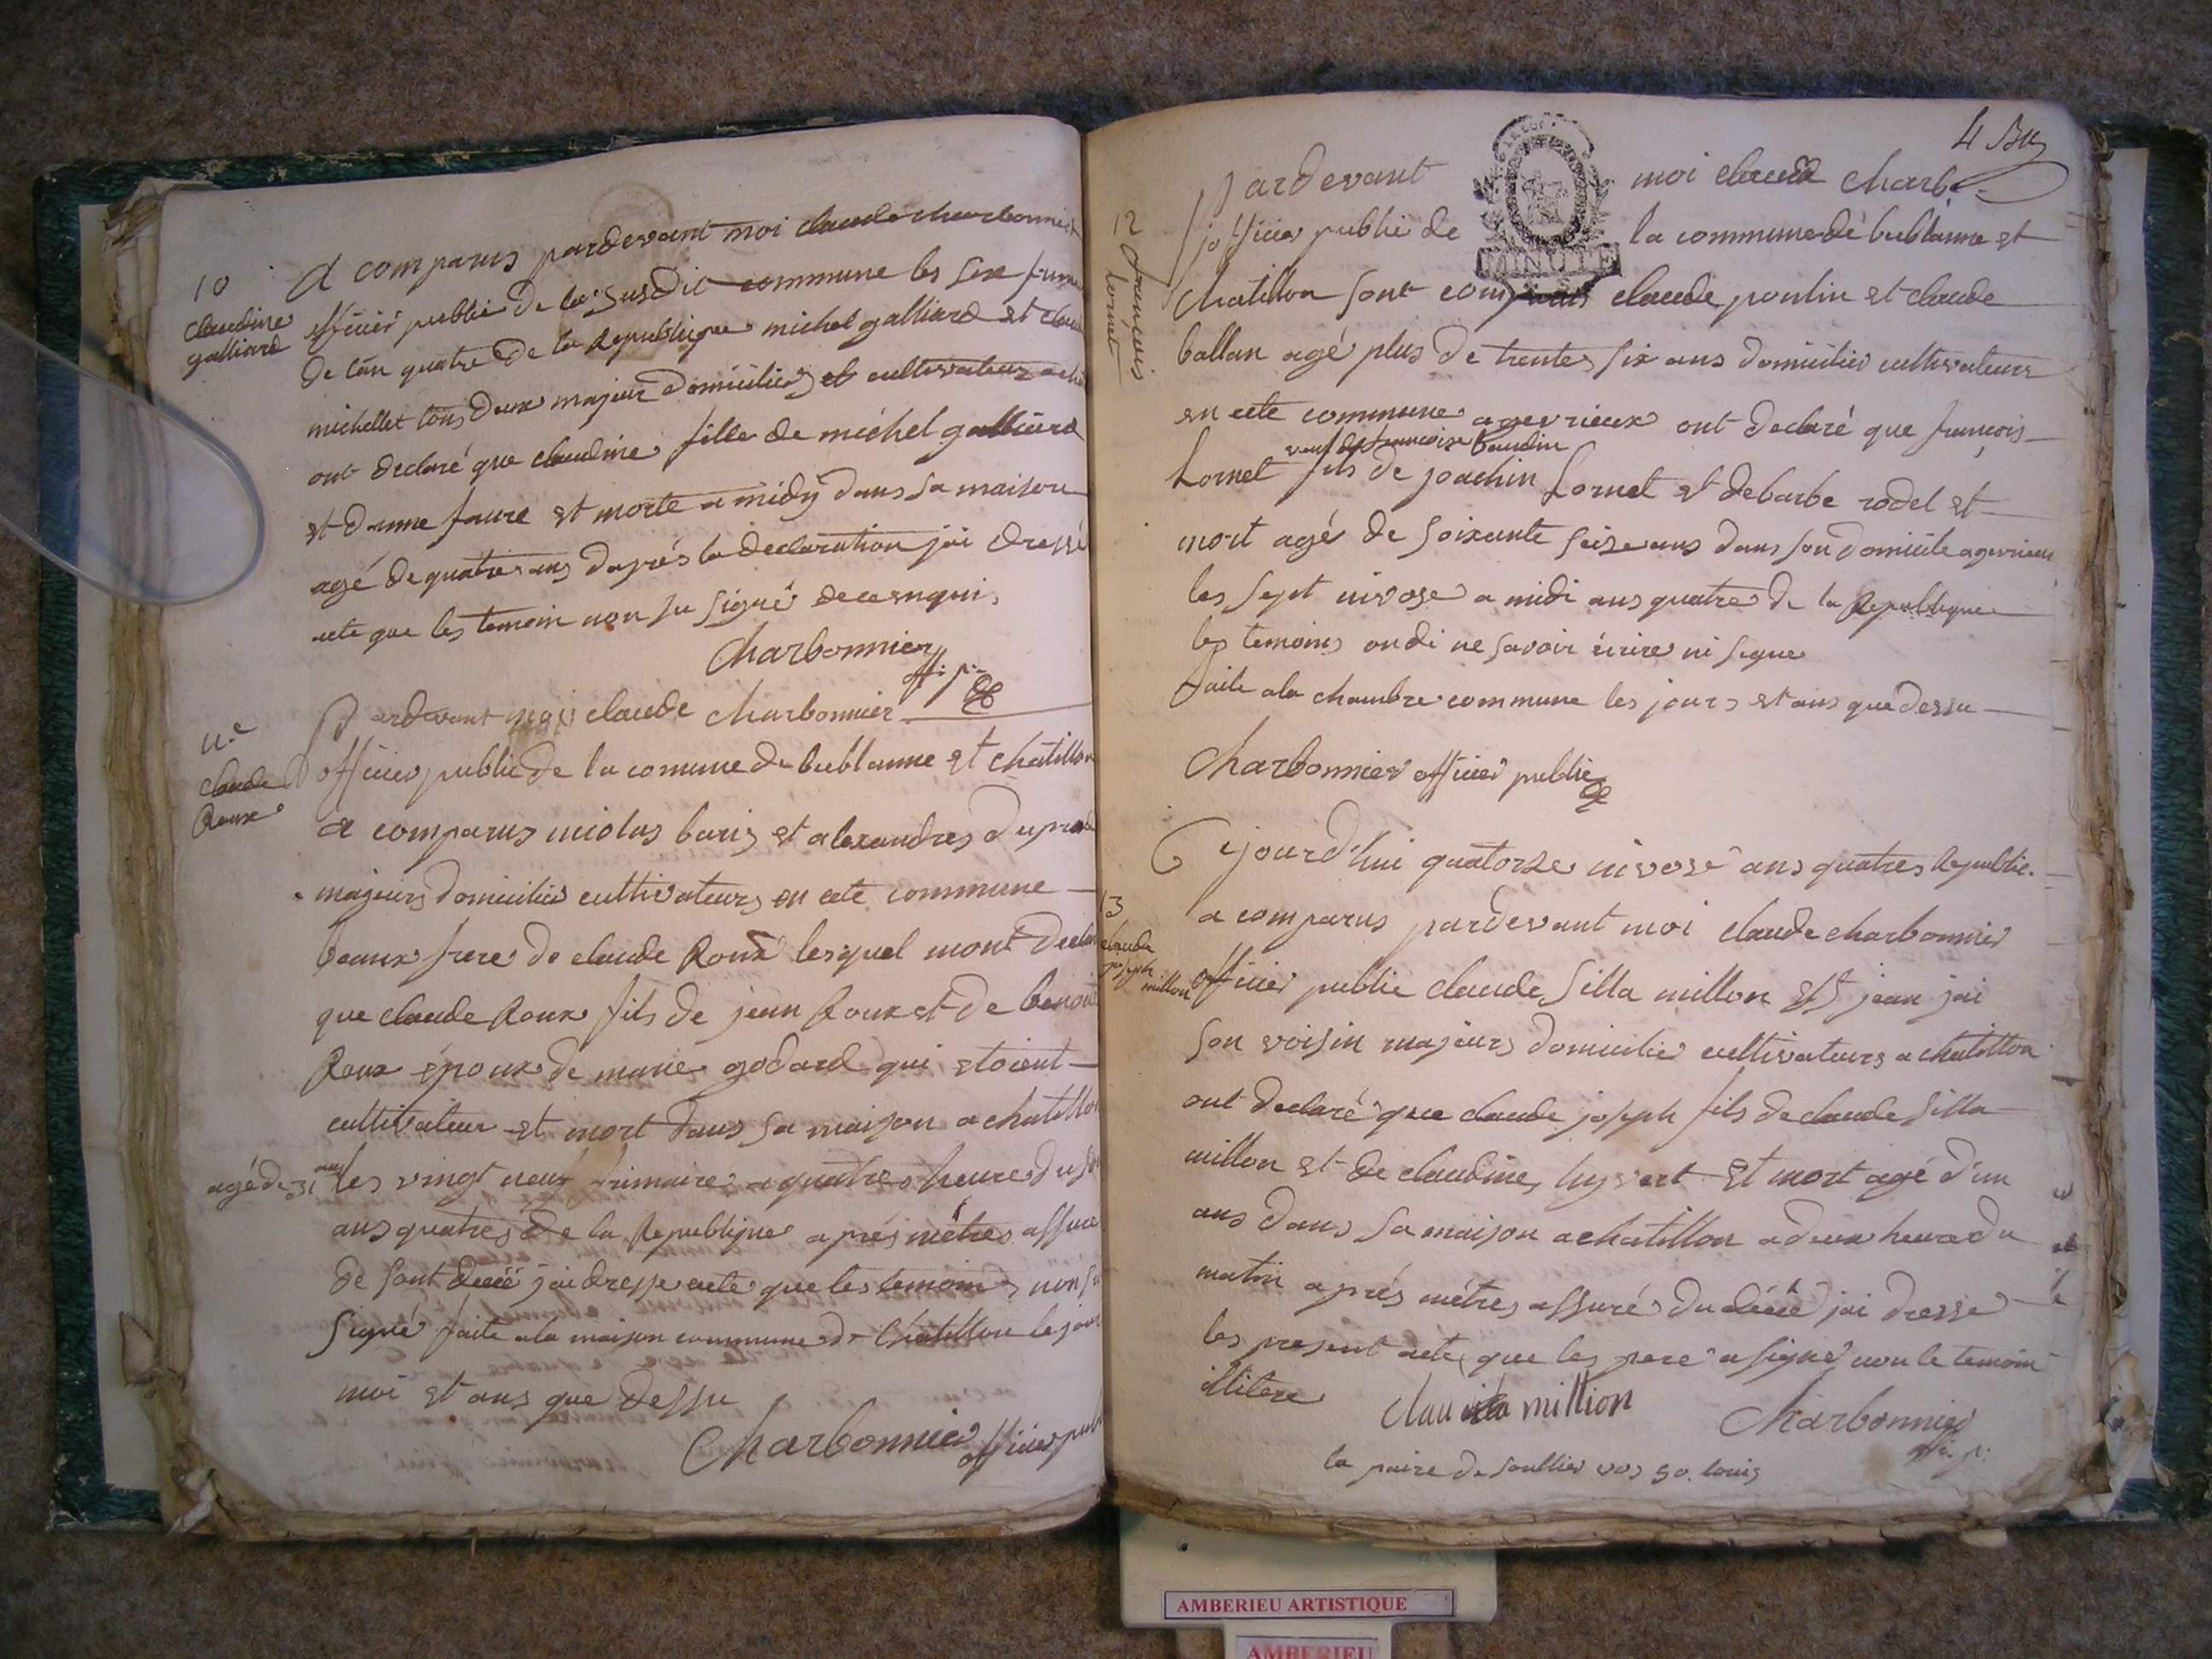 10
claudine
galliard
A comparus pardevant moi claude charbonnier
officier public de la susdit commune les six frim
de l'an quatre de la Republique michel galliard et claud
michellet tous deux majeur domicilies et cultivateur a ch
ont declaré que claudine fille de michel galliard
et danne faure est morte a midy dans sa maison
agé de quatre ans daprés la declaration jai dressé
acte que les temoin non su signé de ce enquis
Charbonnier
offi. p.
11.e
claude
Roux
Pardevant moi claude charbonnier
officier public de la comune de bublanne et chatillon
a comparus niolas baris et alexandres duprad
majeurs domicilies cultivateurs en cete commune
beaux frere de claude Roux lesquel mont declar
que claude Roux fils de jean Roux et de benoit
Roux époux de marie godard qui etoient
cultivateur et mort dans sa maison a chatillon
agé de 31 ans
les vingt neuf frimaire a quatres heure du s
ans quatres de la Republique aprés métres assuré
de sont décé jai dresse acte que les temoins non su
signé faite a la maison commune de Chatillon le jour
moi et ans que dessu
Charbonnier officier publ
4
12
francois
lornet
Pardevant moi claude Charb
officier public de la commune de bublanne et
MINUTE
Chatillon sont comparus claude poulin et claude
ballan agé plus de trentes six ans domicilies cultivateurs
en cete commune a gevrieux ont declaré que francois
veuf de francoise baudin
Lornet fils de joachin Lornet et de barbe rodel et
mort agé de soixante seize ans dans son domicile a gevrieux
les sept nivose a midi ans quatres de la Republique
les temoins on di ne savoir écrire ni signe
faite a la chambre commune les jours et ans que dessu
Charbonnier officier public
13
claude
joseph
millon
Cejourd'hui quatorze nivose ans quatres Republic.
a comparus pardevant moi claude charbonnier
officier public claude silla millon et jean jai
son voisin majeurs domicilie cultivateurs a chatillon
ont declaré que claude joseph fils de claude silla
millon et de claudine hyvert et mort agé d'un
ans dans sa maison a chatillon a deux heure du
matin aprés métres assurés du décé jai dresse
les present acte que les pere a signé non le temoin
illitere
Charbonnier
offi. p.
la paire de soullier vos 50. louis
AMBERIEU ARTISTIQUE
AMBERIEU